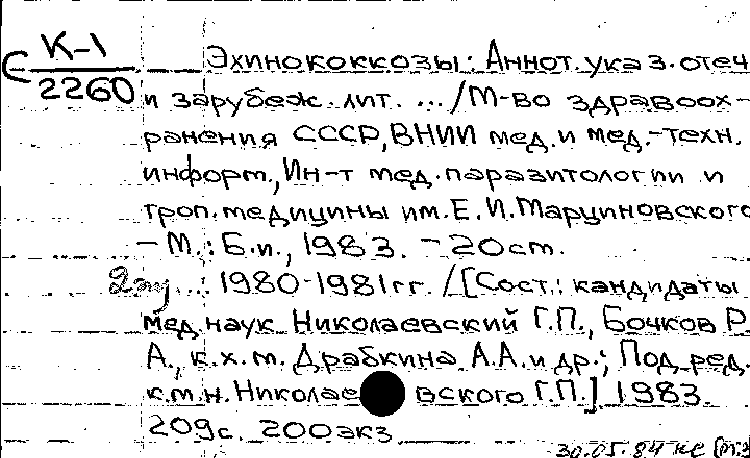 С К-1
2260
Эхинококкозы: Аннот. указ. отеч.
и зарубеж. лит. ... /М-во здравоох-
ранения СССР, ВНИИ мед. и мед.-техн.
информ., Ин-т мед. паразитологии и
троп. медицины им. Е.И. Марциновского
– М.: Б.и., 1983. – 20 cm.
...: 1980-1981 гг. /[Сост.: кандидаты
мед. наук Николаевский Г.П., Бочков Р.
А., к.х.т. Драбкина А.А. и др.; Под ред.
к.т.н. Николаевского Г.П.] 1983.
209с. 200экз
30.05.84 КС